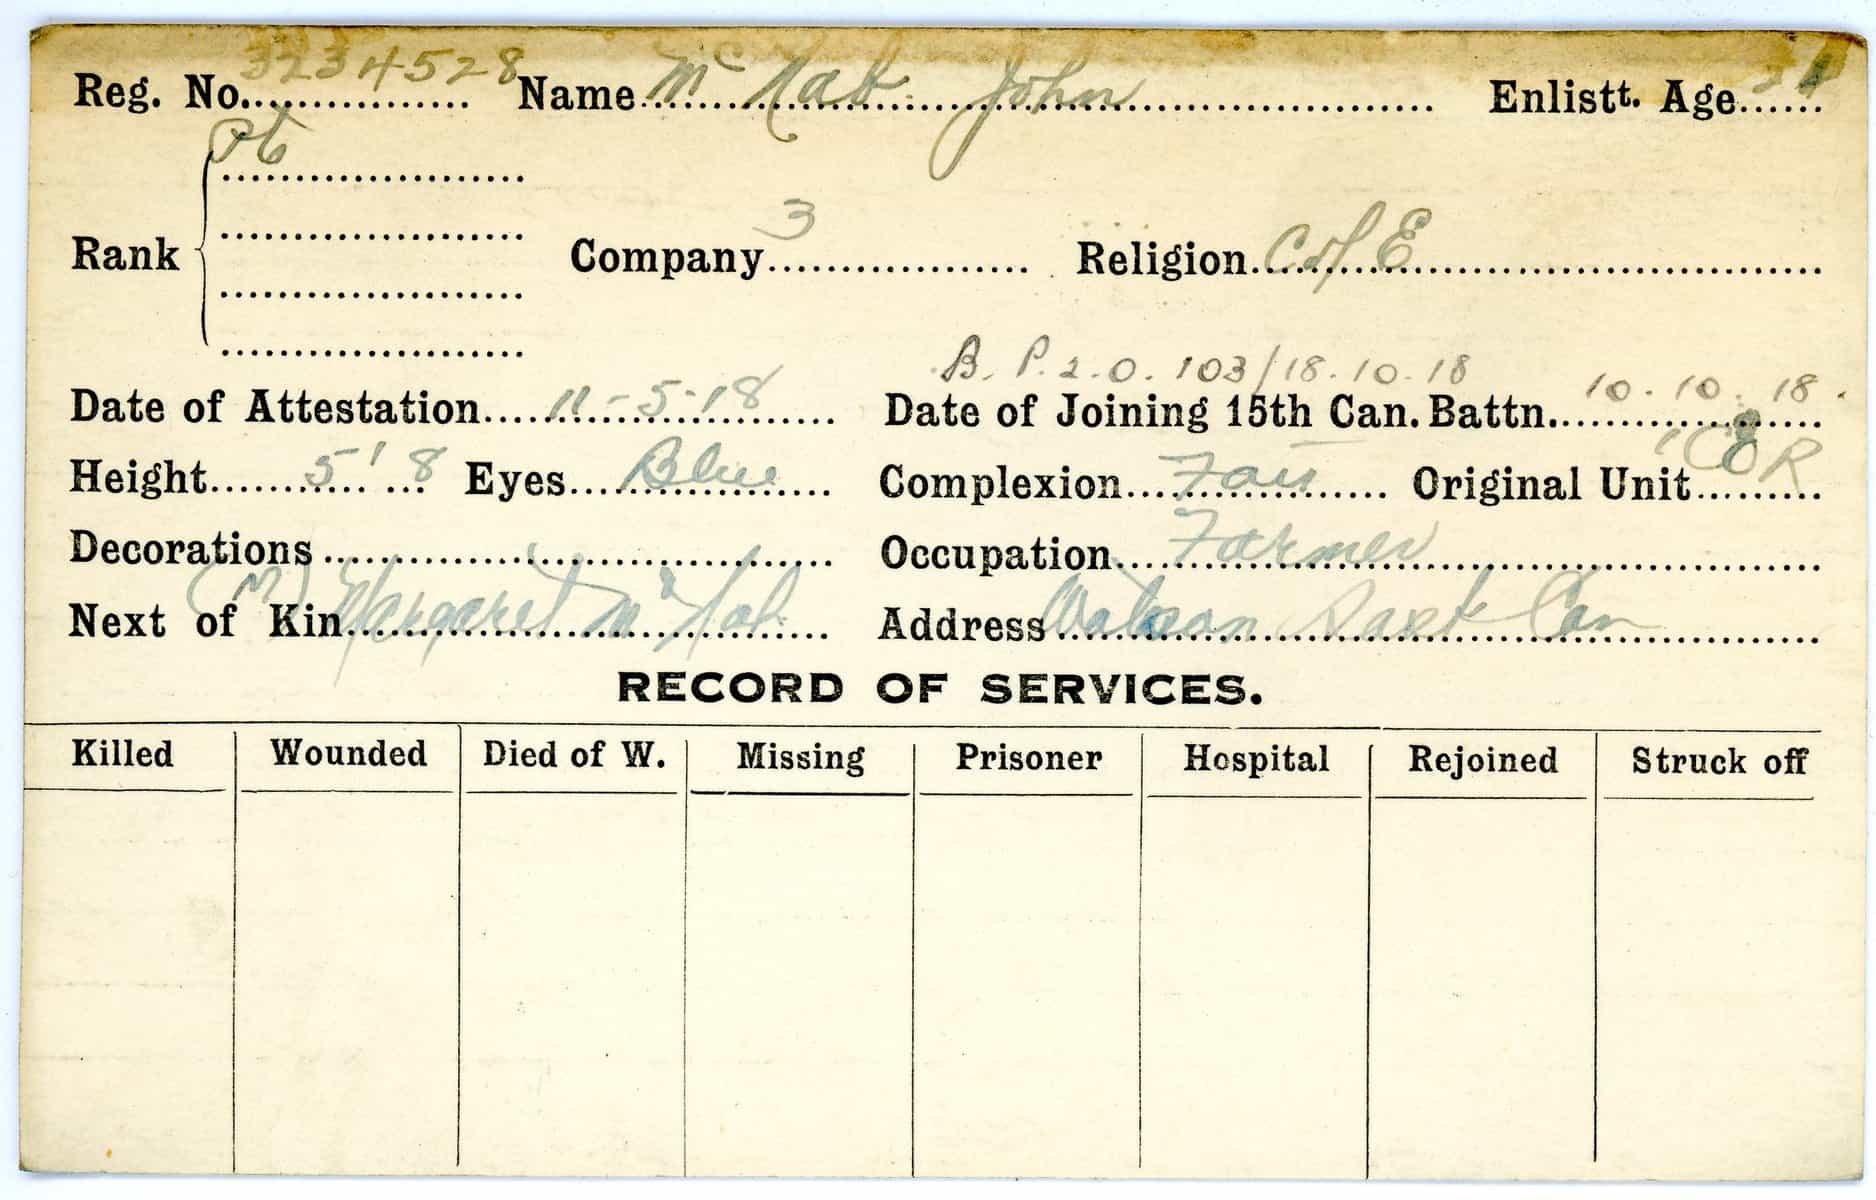 Reg. No. 3234528 Name McNab John Enlistt. Age
Pte
Rank Company 3 Religion C of E
B. P. 2. O. 103/18.10.18
Date of Attestation 11-5-18 Date of Joining 15th Can. Battn. 10.10.18.
Height 5' 8 Eyes Blue Complexion Fair Original Unit COR
Decorations Occupation Farmer
Next of Kin (M) Margaret McNab Address Watson Sask Can
RECORD OF SERVICES.
Killed Wounded Died of W. Missing Prisoner Hospital Rejoined Struck off